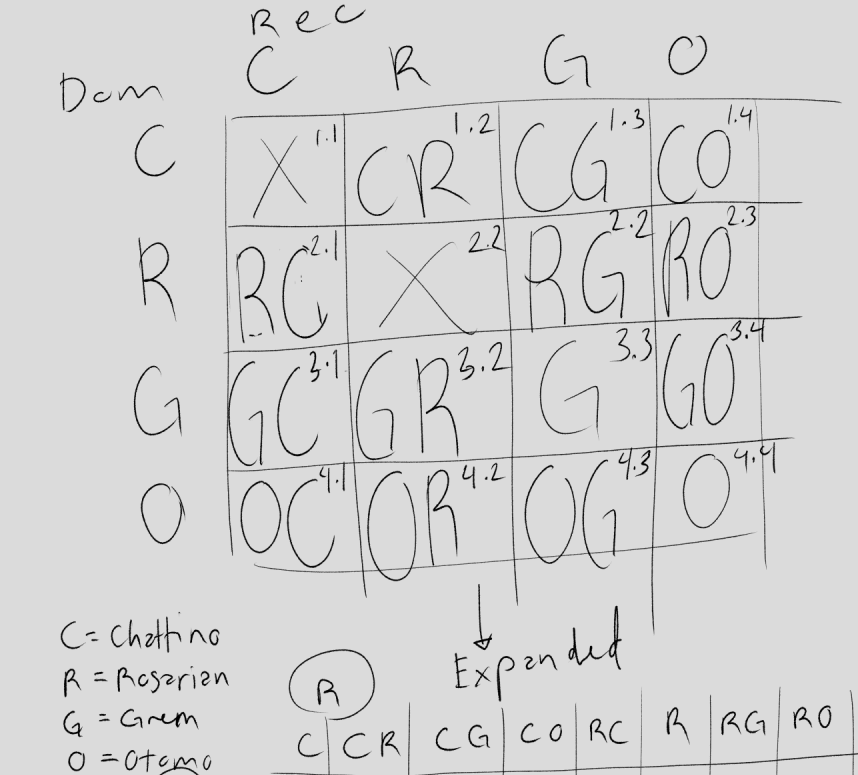 Rec
C R G O
Dom
C X 1.1 CR 1.2 CG 1.3 CO 1.4
R RC 2.1 X 2.2 RG 2.2 RO 2.3
G GC 3.1 GR 3.2 G 3.3 GO 3.4
O OC 4.1 OR 4.2 OG 4.3 O 4.4
Expanded
C = Chattino
R = Rosarian
G = Grem
O = Otomo
R
C CR CG CO RC R RG RO